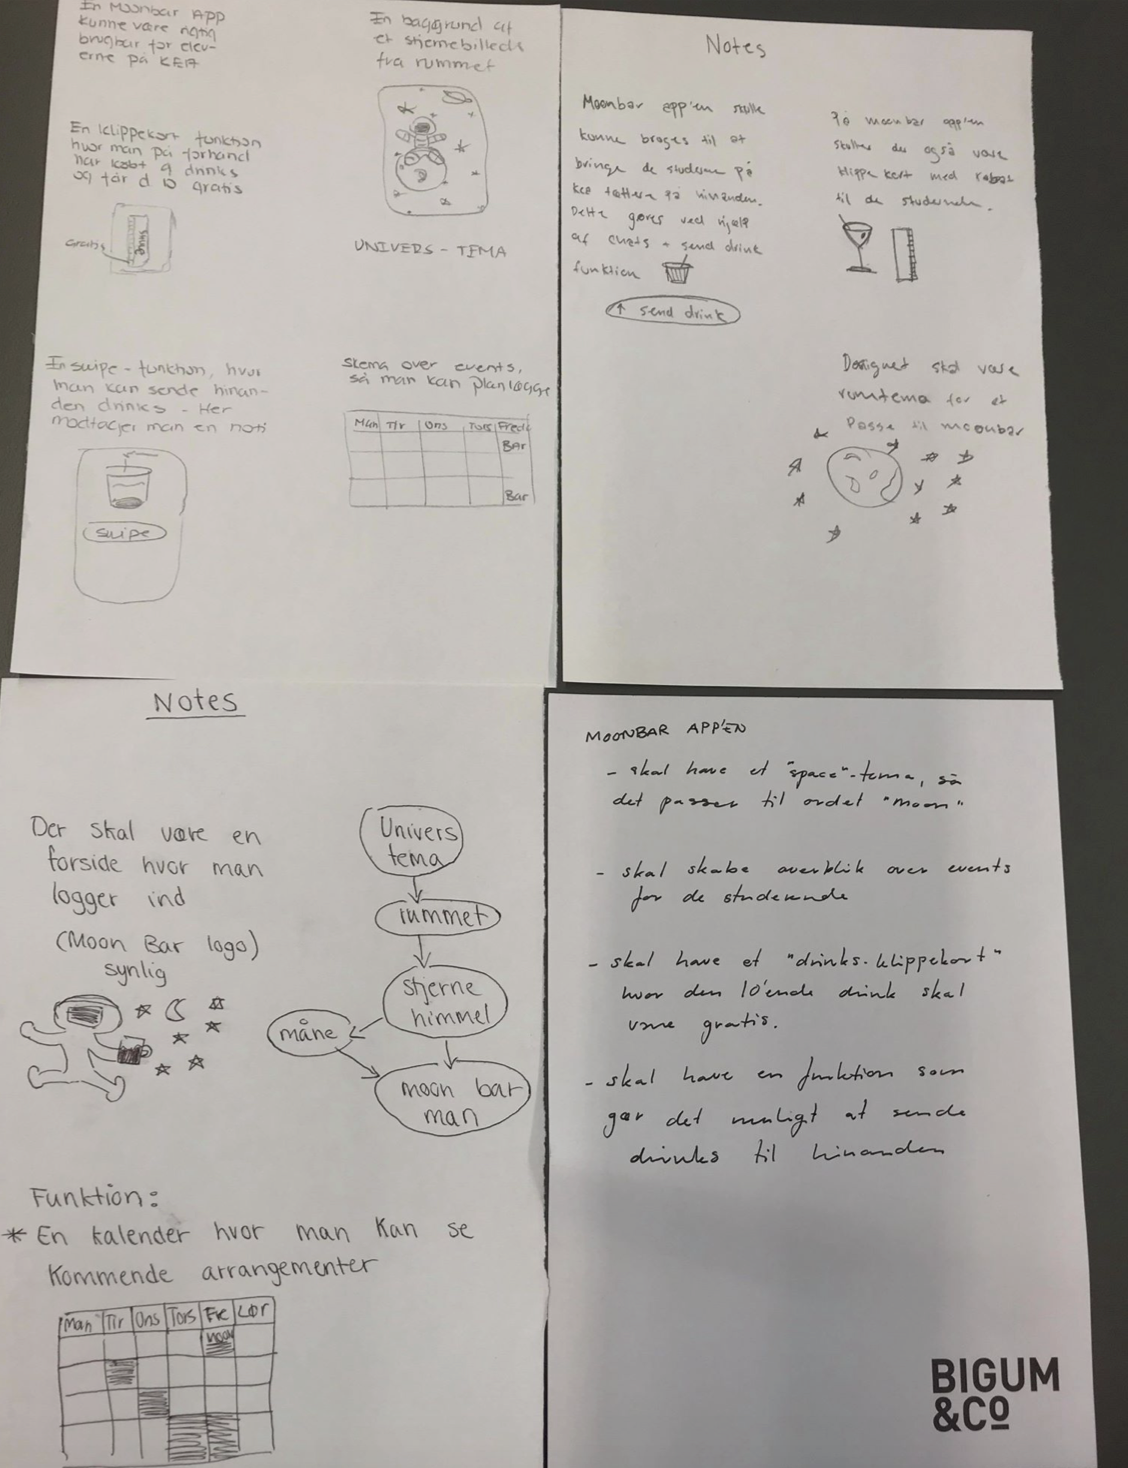 En Moonbar APP
kunne være rigtig
brugbar for elev-
erne på KEA
En baggrund af
et stjernebillede
fra rummet
En klippekort funktion
hvor man på forhånd
har købt 9 drinks
og får d 10 gratis
Gratis
swipe
UNIVERS - TEMA
En swipe - funktion, hvor
man kan sende hinan-
den drinks - Her
modtager man en noti
swipe
Skema over events,
så man kan planlægge
Man Tir Ons Tors Fred
BAr
Bar
Notes
Moonbar app'en skulle
kunne bruges til at
bringe de studerene på
kea tættere på hinanden.
Dette gøres ved hjælp
af chats + send drink
funktion
↑ send drink
På moonbar app'en
skulle der også være
klippe kort med rabat
til de studerende.
Designet skal være
rumtema for at
Passe til moonbar
Notes
Der skal være en
forside hvor man
logger ind
(Moon Bar logo)
synlig
Univers
tema
rummet
stjerne
himmel
måne
moon bar
man
Funktion:
* En kalender hvor man kan se
kommende arrangementer
Man Tir Ons Tors Fre Lør
MOONBAR APP'EN
- skal have et "space"-tema, så
det passer til ordet "moon"
- skal skabe overblik over events
for de studerende
- skal have et "drinks-klippekort"
hvor den 10'ende drink skal
være gratis.
- skal have en funktion som
gør det muligt at sende
drinks til hinanden
BIGUM
&CO